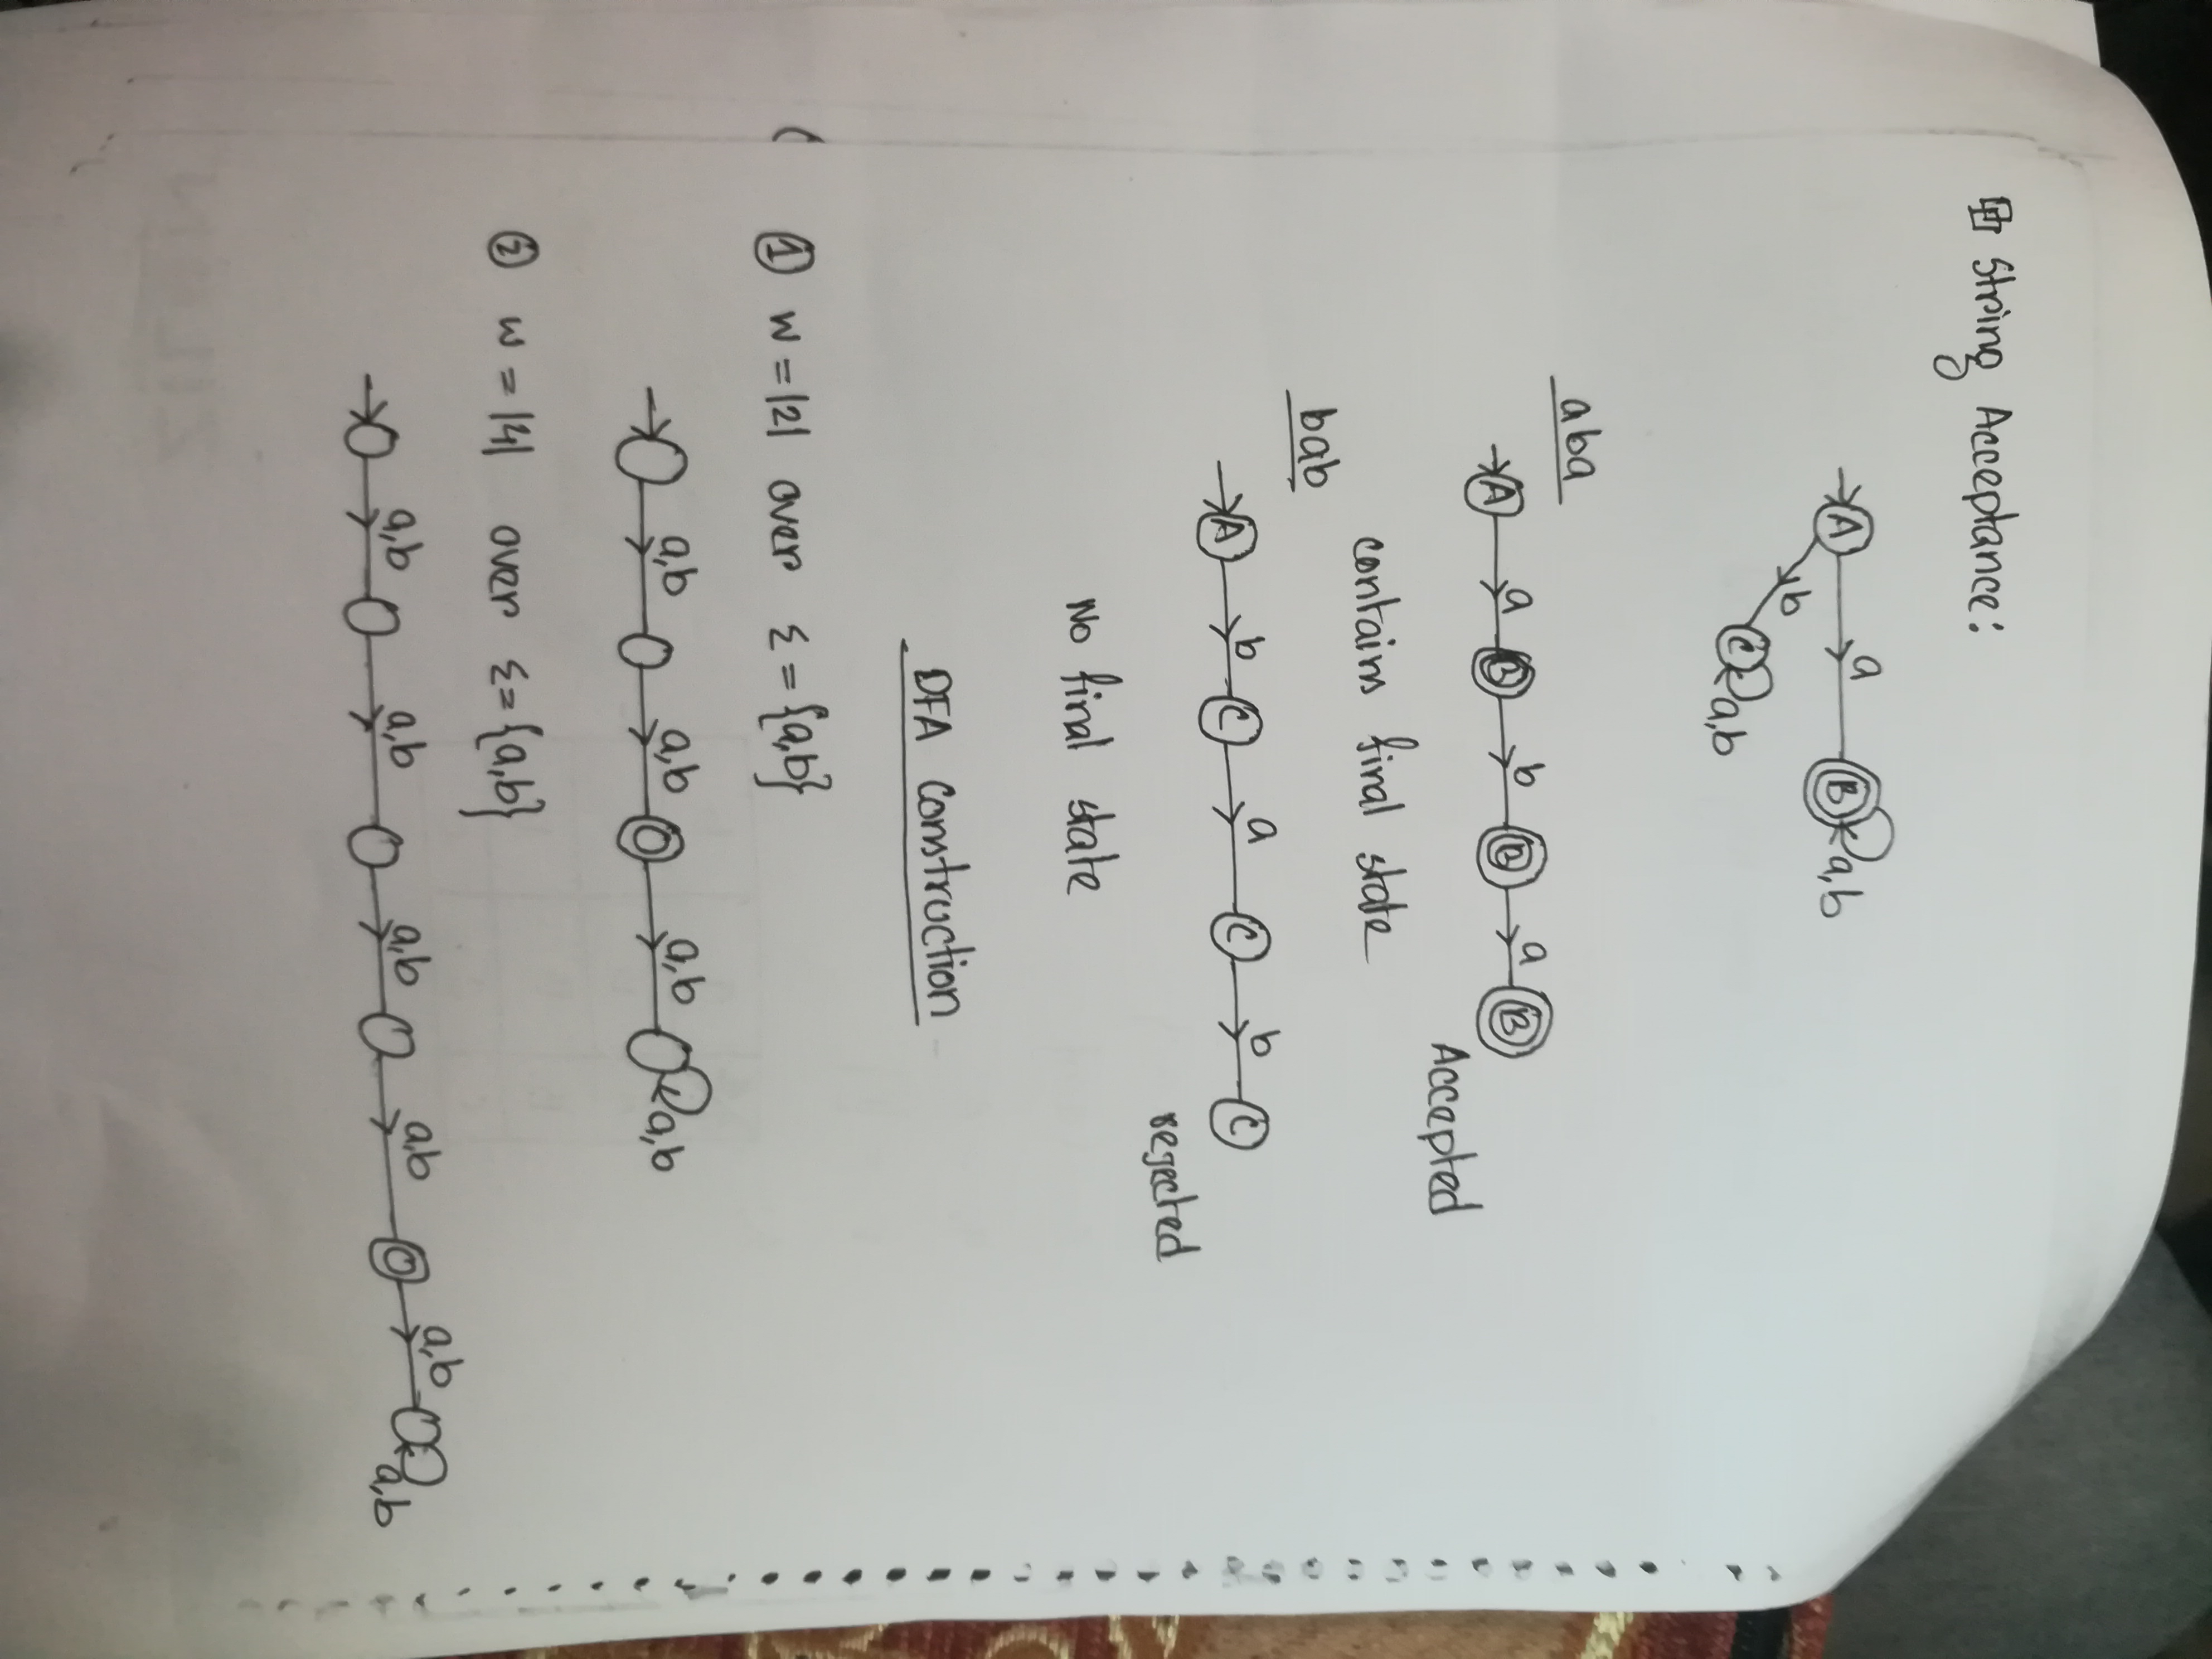 String Acceptance:
A a B a,b
b
C a,b
aba
A a B b B a B
Accepted
contains final state
bab
A b C a C b C
rejected
No final state
DFA Construction
① w = |2| over Σ = {a,b}
a,b a,b a,b a,b
② w = |4| over Σ = {a,b}
a,b a,b a,b a,b a,b a,b